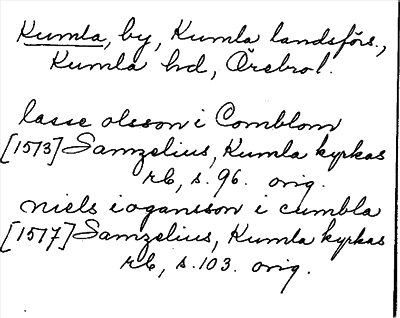 Kumla, by, Kumla landsförs.,
Kumla hd, Örebro l.
lasse olsson i Comblom
[1573] Samzelius, Kumla kyrkas
rb, s. 96. orig.
niels iogansson i cumbla
[1577] Samzelius, Kumla kyrkas
rb, s. 103. orig.